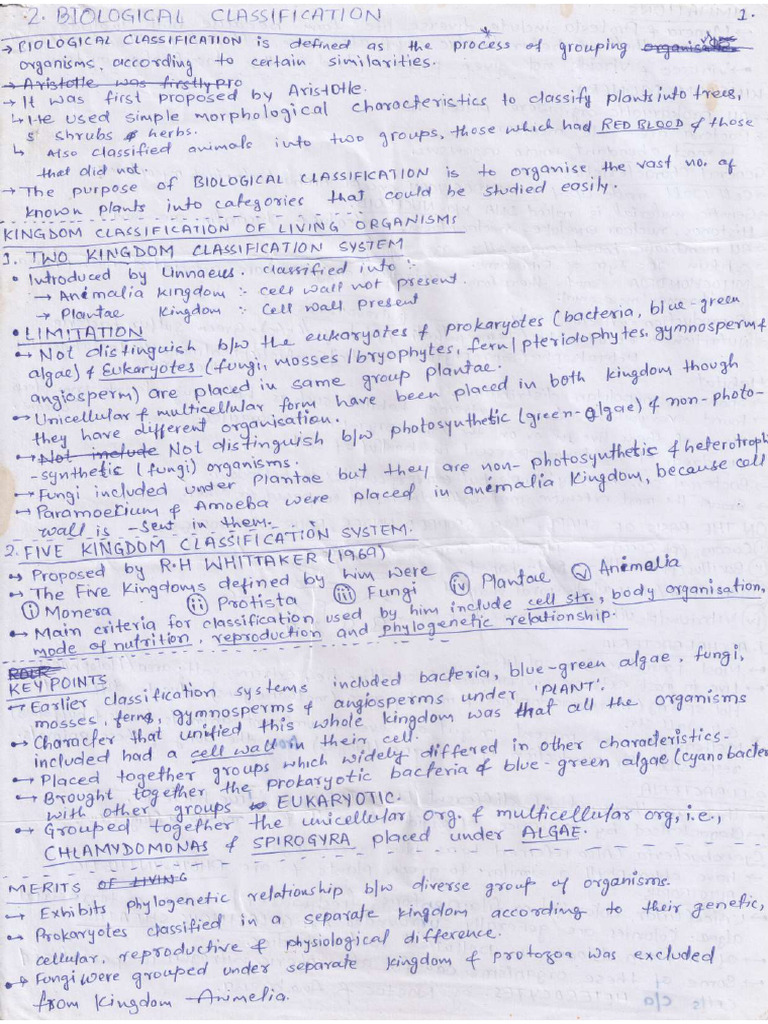 2. BIOLOGICAL CLASSIFICATION 1.
→ BIOLOGICAL CLASSIFICATION is defined as the process of grouping
organisms, according to certain similarities.
→ Aristotle was firstly pro
→ It was first proposed by Aristotle.
↳ He used simple morphological characteristics to classify plants into trees,
shrubs & herbs.
↳ Also classified animals into two groups, those which had RED BLOOD & those
that did not.
→ The purpose of BIOLOGICAL CLASSIFICATION is to organise the vast no. of
known plants into categories that could be studied easily.
KINGDOM CLASSIFICATION OF LIVING ORGANISMS
1. TWO KINGDOM CLASSIFICATION SYSTEM
• Introduced by Linnaeus. classified into :-
→ Animalia kingdom :- cell wall not present
→ Plantae kingdom :- Cell wall present
• LIMITATION
→ Not distinguish b/w the eukaryotes & prokaryotes (bacteria, blue-green
algae) & Eukaryotes (fungi, mosses/bryophytes, fern/pteridophytes, gymnosperm &
angiosperm) are placed in same group plantae.
→ Unicellular & multicellular form have been placed in both kingdom though
they have different organisation.
→ Not include Not distinguish b/w photosynthetic (green-algae) & non-photo-
-synthetic (fungi) organisms.
→ Fungi included under Plantae but they are non-photosynthetic & heterotroph
→ Paramoecium & Amoeba were placed in animalia kingdom, because cell
wall is -sent in them.
2. FIVE KINGDOM CLASSIFICATION SYSTEM.
→ Proposed by R.H WHITTAKER (1969)
→ The Five Kingdoms defined by him were
(i) Monera (ii) Protista (iii) Fungi (iv) Plantae (v) Animalia
→ Main criteria for classification used by him include cell str., body organisation,
mode of nutrition, reproduction and phylogenetic relationship.
KEY POINTS
→ Earlier classification systems included bacteria, blue-green algae, fungi,
mosses, ferns, gymnosperms & angiosperms under 'PLANT'.
→ Character that unified this whole kingdom was that all the organisms
included had a cell wall in their cell.
→ Placed together groups which widely differed in other characteristics-
→ Brought together the prokaryotic bacteria & blue-green algae (cyanobacter
with other groups EUKARYOTIC.
→ Grouped together the unicellular org. & multicellular org, i.e.,
CHLAMYDOMONAS & SPIROGYRA placed under ALGAE.
MERITS OF LIVING
→ Exhibits phylogenetic relationship b/w diverse group of organisms.
→ Prokaryotes classified in a separate kingdom according to their genetic,
cellular, reproductive & physiological difference.
→ Fungi were grouped under separate kingdom & protozoa was excluded
from kingdom - Animelia.